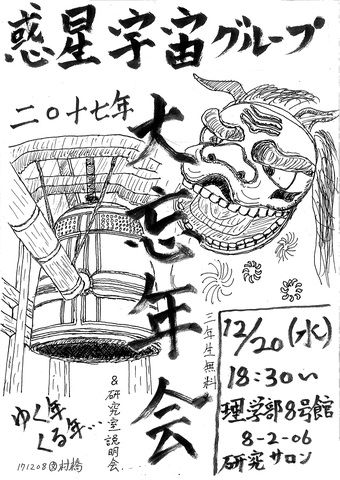 惑星宇宙グループ
二〇十七年
大忘年会
&研究室説明会
三年生無料
12/20(水)
18:30〜
理学部8号館
8-2-06
研究サロン
ゆく年
くる年…
171208図村橋